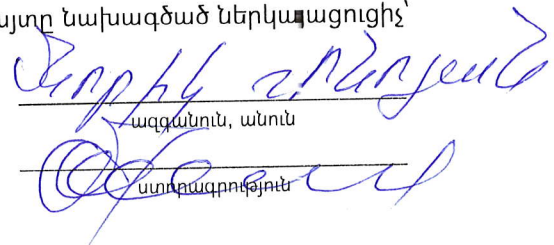 այտը նախագծած ներկայացուցիչ՝
Նորիկ
ազգանուն, անուն
ստորագրություն